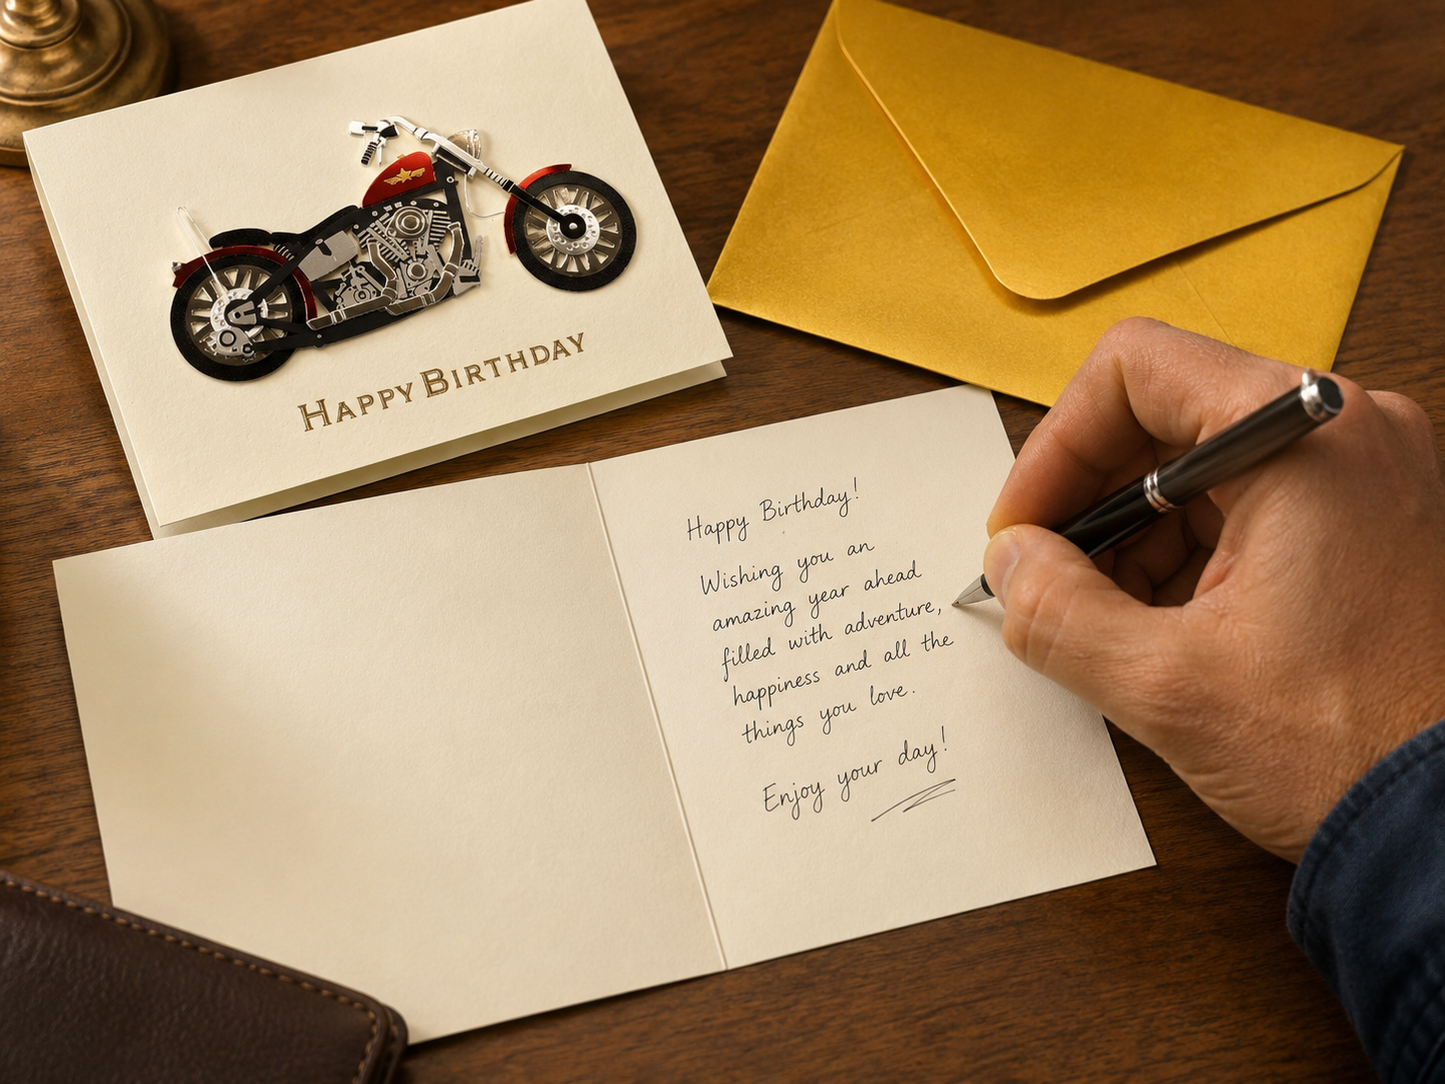 HAPPY BIRTHDAY
Happy Birthday!
Wishing you an
amazing year ahead
filled with adventure,
happiness and all the
things you love.
Enjoy your day!